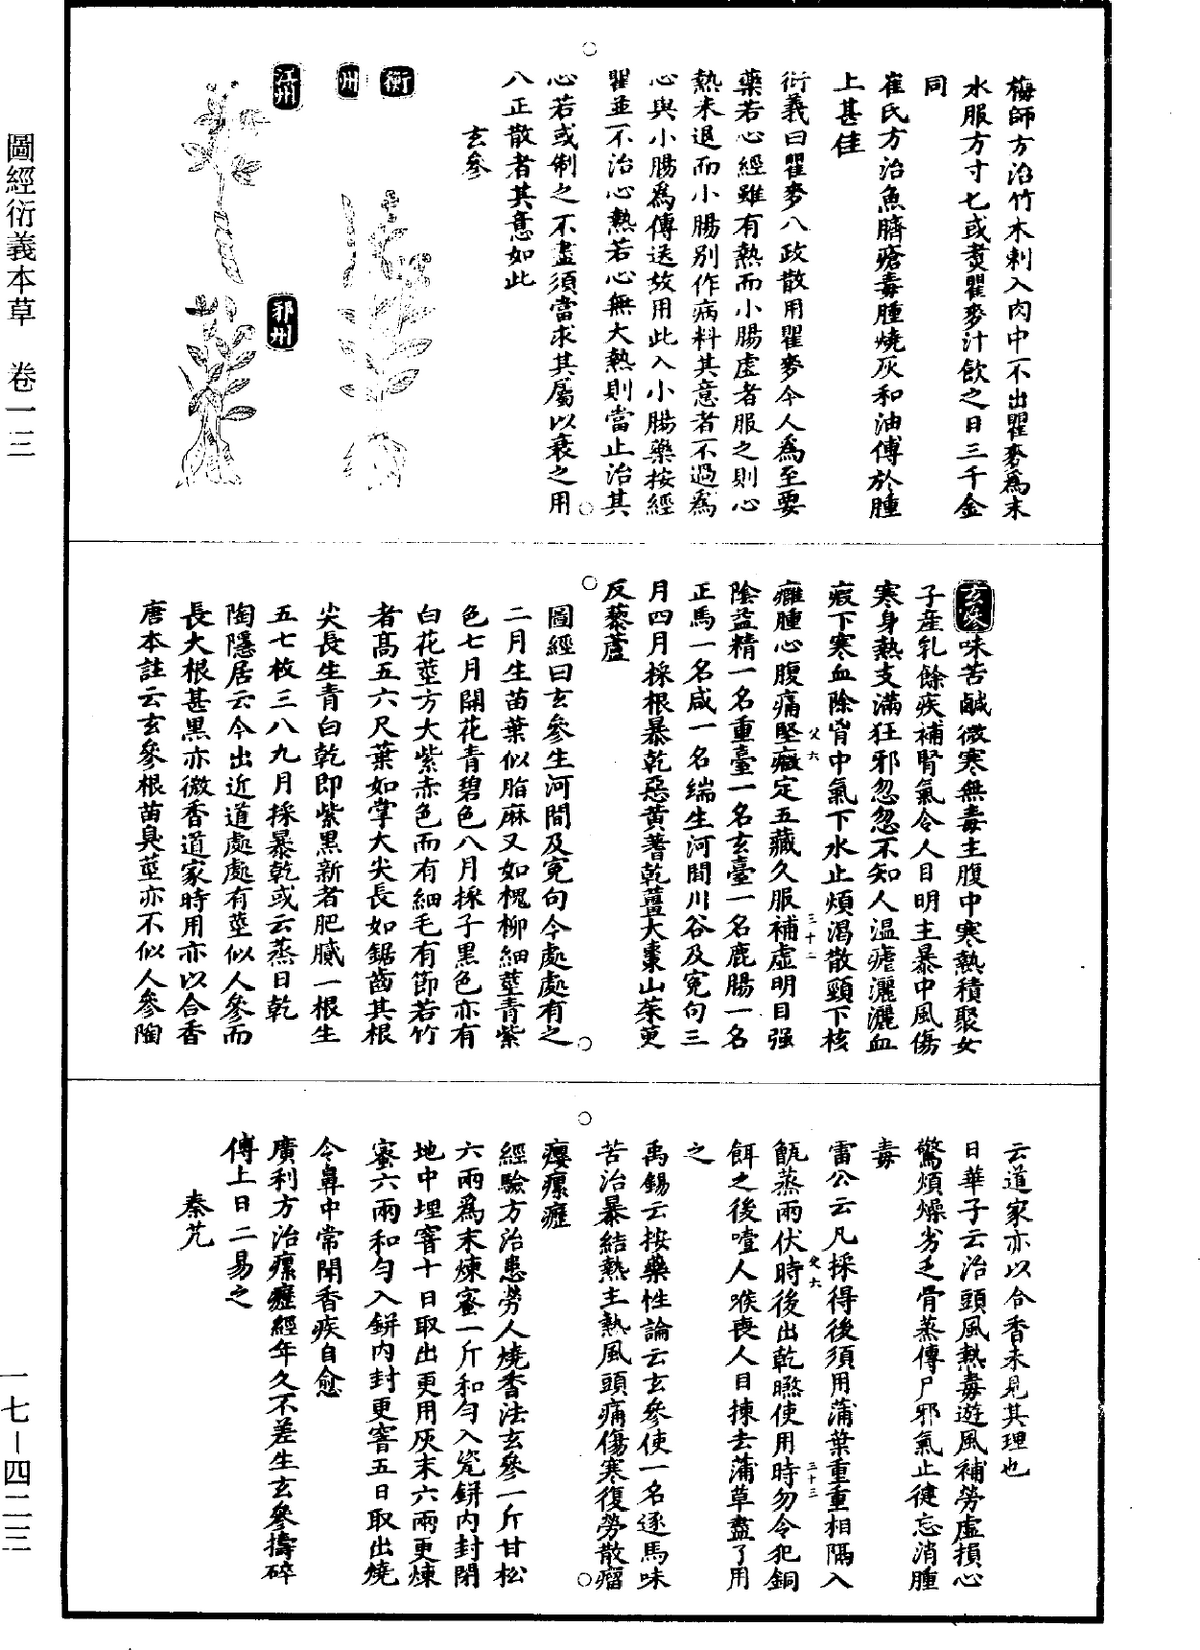 圖經衍義本草　卷一三
一七－四二三
梅師方治竹木刺入肉中不出瞿麥爲末
水服方寸匕或煑瞿麥汁飲之日三千金
同
崔氏方治魚臍瘡毒腫燒灰和油傅於腫
上甚佳
衍義曰瞿麥八政散用瞿麥今人爲至要
藥若心經雖有熱而小腸虛者服之則心
熱未退而小腸別作病料其意者不過爲
心與小腸爲傳送故用此入小腸藥按經
瞿並不治心熱若心無大熱則當止治其
心若或制之不盡須當求其屬以衰之用
八正散者其意如此
玄參
衡州
江州
邢州
玄參味苦鹹微寒無毒主腹中寒熱積聚女
子産乳餘疾補腎氣令人目明主暴中風傷
寒身熱支滿狂邪忽忽不知人温瘧灑灑血
瘕下寒血除胷中氣下水止煩渴散頸下核
癰腫心腹痛堅癥定五藏久服補虛明目强
陰益精一名重臺一名玄臺一名鹿腸一名
正馬一名咸一名端生河間川谷及冤句三
月四月採根暴乾惡黃蓍乾薑大棗山茱萸
反藜蘆
圖經曰玄參生河間及冤句今處處有之
二月生苗葉似脂麻又如槐柳細莖青紫
色七月開花青碧色八月採子黑色亦有
白花莖方大紫赤色而有細毛有節若竹
者高五六尺葉如掌大尖長如鋸齒其根
尖長生青白乾即紫黑新者肥膩一根生
五七枚三八九月採暴乾或云蒸日乾
陶隱居云今出近道處處有莖似人參而
長大根甚黑亦微香道家時用亦以合香
唐本註云玄參根苗臭莖亦不似人參陶
云道家亦以合香未見其理也
日華子云治頭風熱毒遊風補勞虛損心
驚煩燥劣乏骨蒸傳尸邪氣止健忘消腫
毒
雷公云凡採得後須用蒲葉重重相隔入
甑蒸兩伏時後出乾㬠使用時勿令犯銅
餌之後噎人喉喪人目揀去蒲草盡了用
之
禹錫云按藥性論云玄參使一名逐馬味
苦治暴結熱主熱風頭痛傷寒復勞散瘤
癭瘰癧
經驗方治患勞人燒香法玄參一斤甘松
六兩爲末煉蜜一斤和勻入瓷缾內封閉
地中埋窨十日取出更用灰末六兩更煉
蜜六兩和勻入缾內封更窨五日取出燒
令鼻中常聞香疾自愈
廣利方治瘰癧經年久不差生玄參擣碎
傅上日二易之
秦艽
父六
三十二
父六
三十三